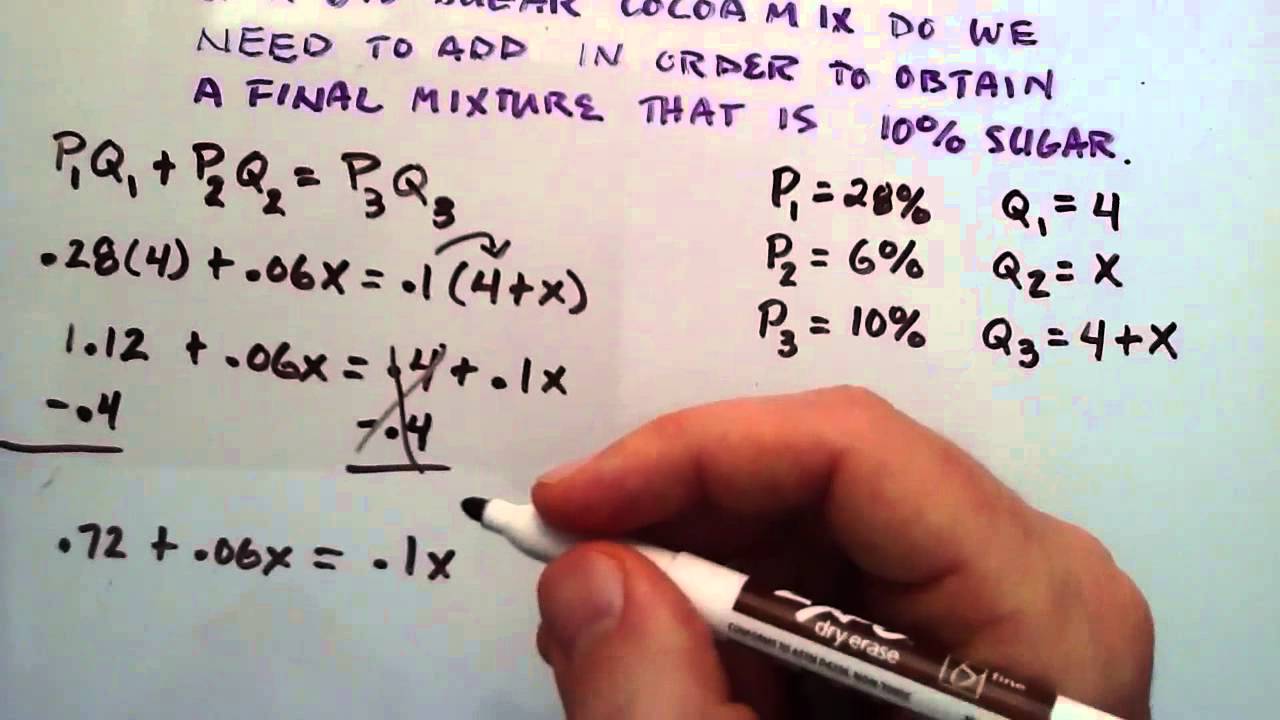 SUGAR COCOA MIX DO WE
NEED TO ADD IN ORDER TO OBTAIN
A FINAL MIXTURE THAT IS 10% SUGAR.
P₁Q₁ + P₂Q₂ = P₃Q₃
.28(4) + .06x = .1(4+x)
1.12 + .06x = .4 + .1x
-.4 -.4
.72 + .06x = .1x
P₁ = 28% Q₁ = 4
P₂ = 6% Q₂ = x
P₃ = 10% Q₃ = 4+x
dry erase
fine